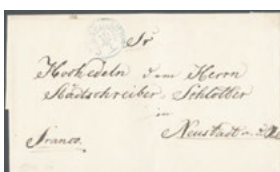 Sr
Hochedeln dem Herrn
Stadtschreiber Schlotter
in
Neustadt a. d.
Franco.